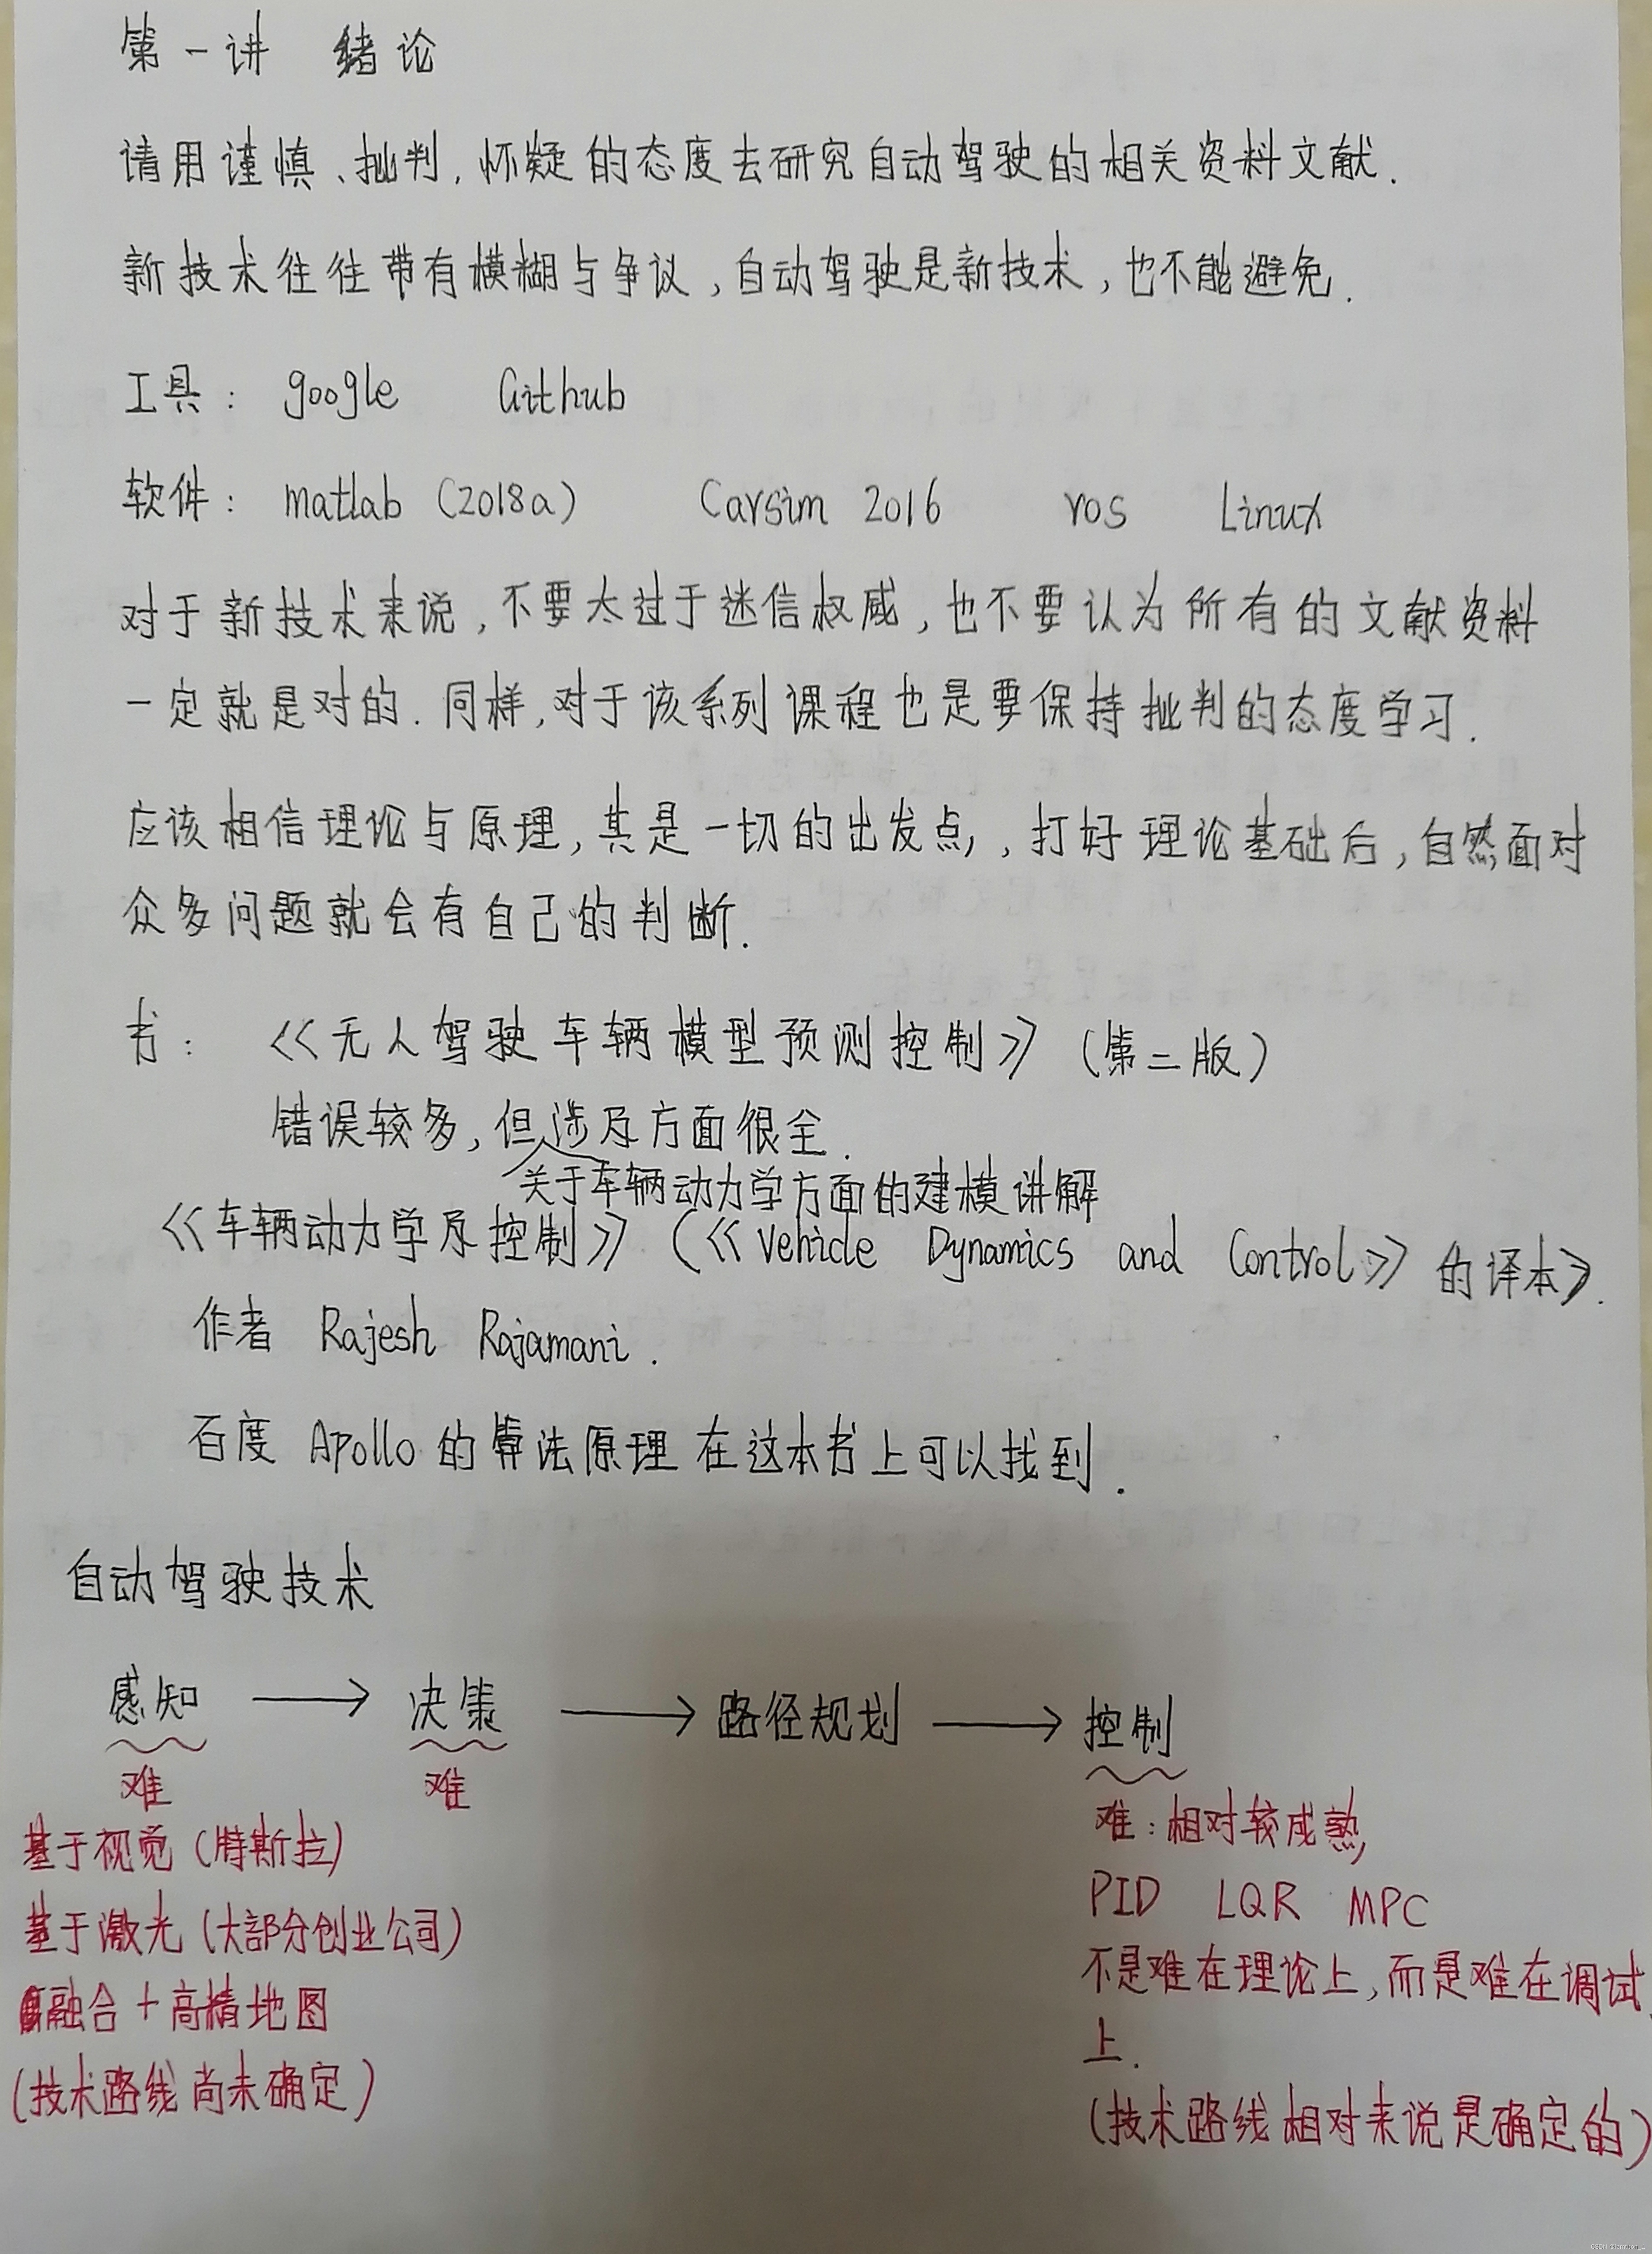 第一讲 绪论
请用谨慎、批判,怀疑的态度去研究自动驾驶的相关资料文献.
新技术往往带有模糊与争议,自动驾驶是新技术,也不能避免.
工具: google Github
软件: matlab (2018a) Carsim 2016 ros Linux
对于新技术来说,不要太过于迷信权威,也不要认为所有的文献资料
一定就是对的.同样,对于该系列课程也是要保持批判的态度学习.
应该相信理论与原理,其是一切的出发点,,打好理论基础后,自然面对
众多问题就会有自己的判断.
书: <<无人驾驶车辆模型预测控制>> (第二版)
错误较多,但涉及方面很全.
关于车辆动力学方面的建模讲解
<<车辆动力学及控制>> (<<Vehicle Dynamics and Control>> 的译本>.
作者 Rajesh Rajamani.
百度 Apollo 的算法原理在这本书上可以找到.
自动驾驶技术
感知 → 决策 → 路径规划 → 控制
难 难
难:相对较成熟,
基于视觉(特斯拉)
PID LQR MPC
基于激光(大部分创业公司)
不是难在理论上,而是难在调试
融合+高精地图
上.
(技术路线尚未确定)
(技术路线相对来说是确定的)